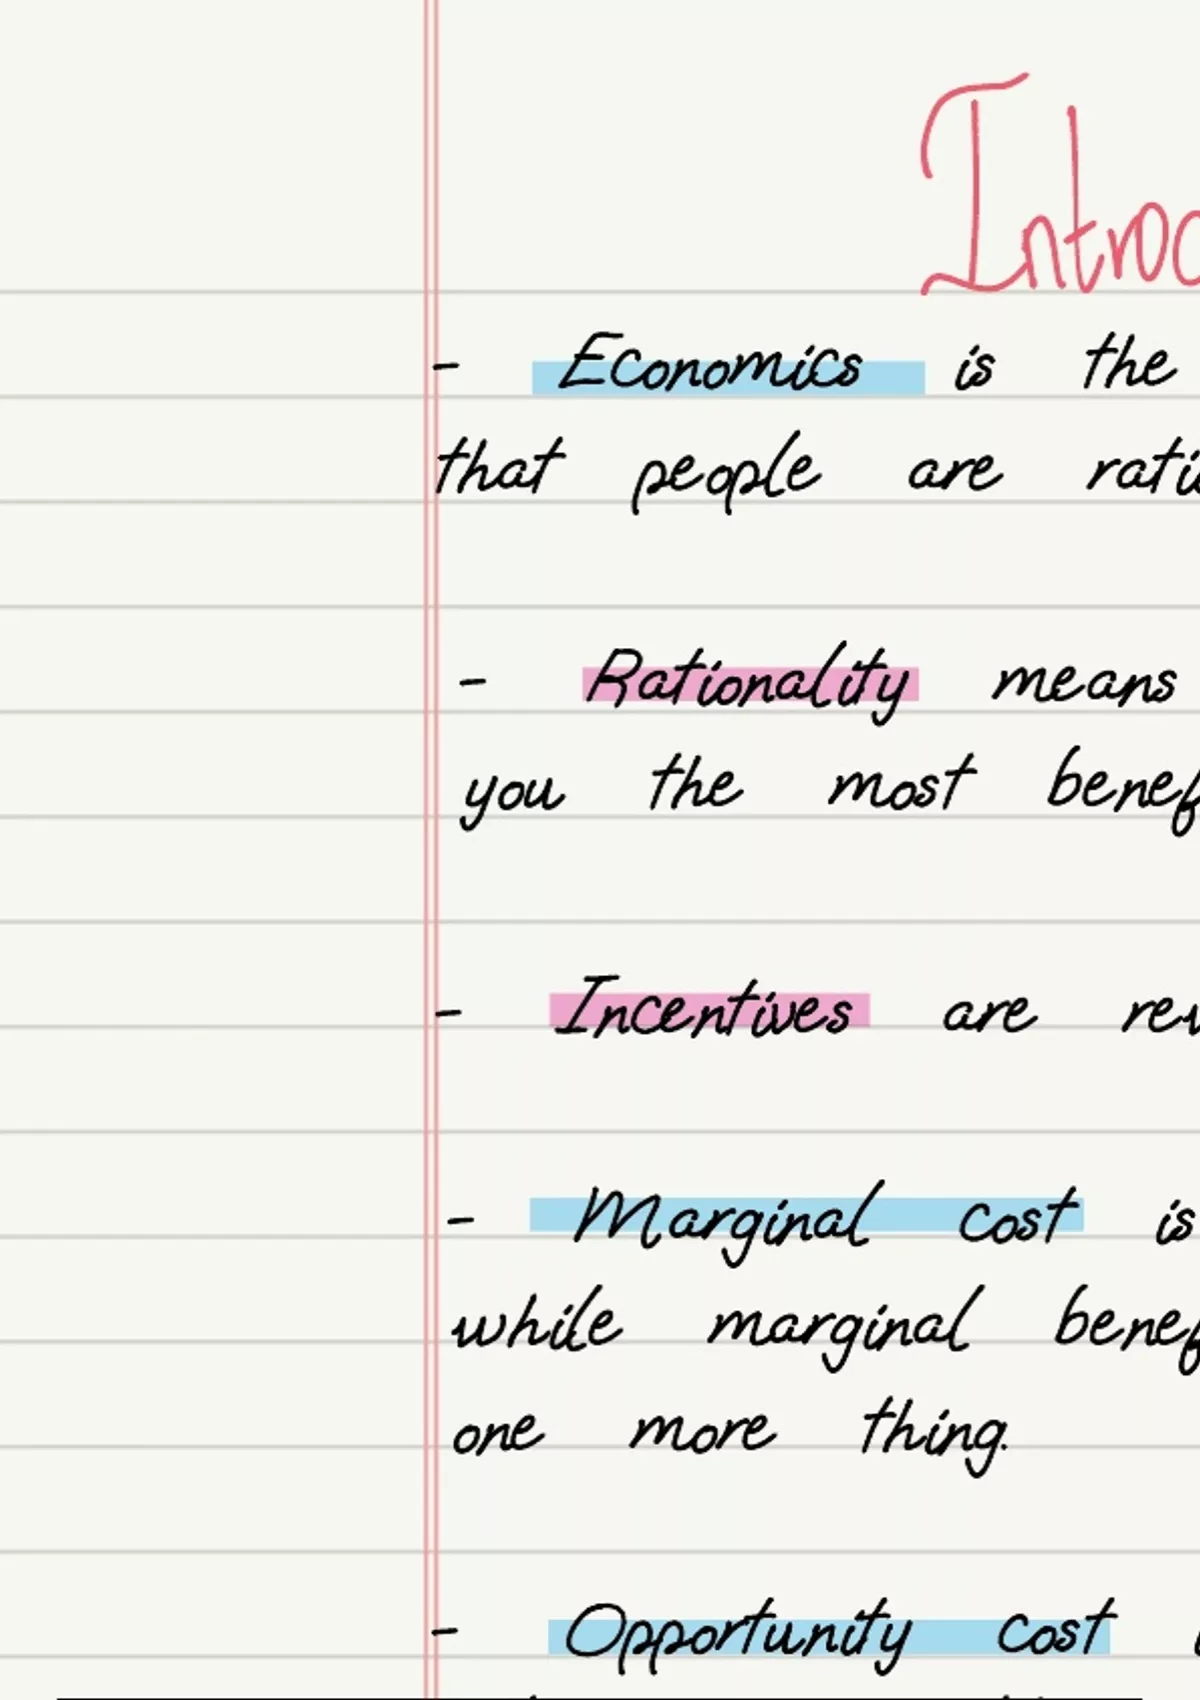 Introd
- Economics is the
that people are ratio
- Rationality means
you the most benef
- Incentives are rew
- Marginal cost is
while marginal benef
one more thing.
- Opportunity cost